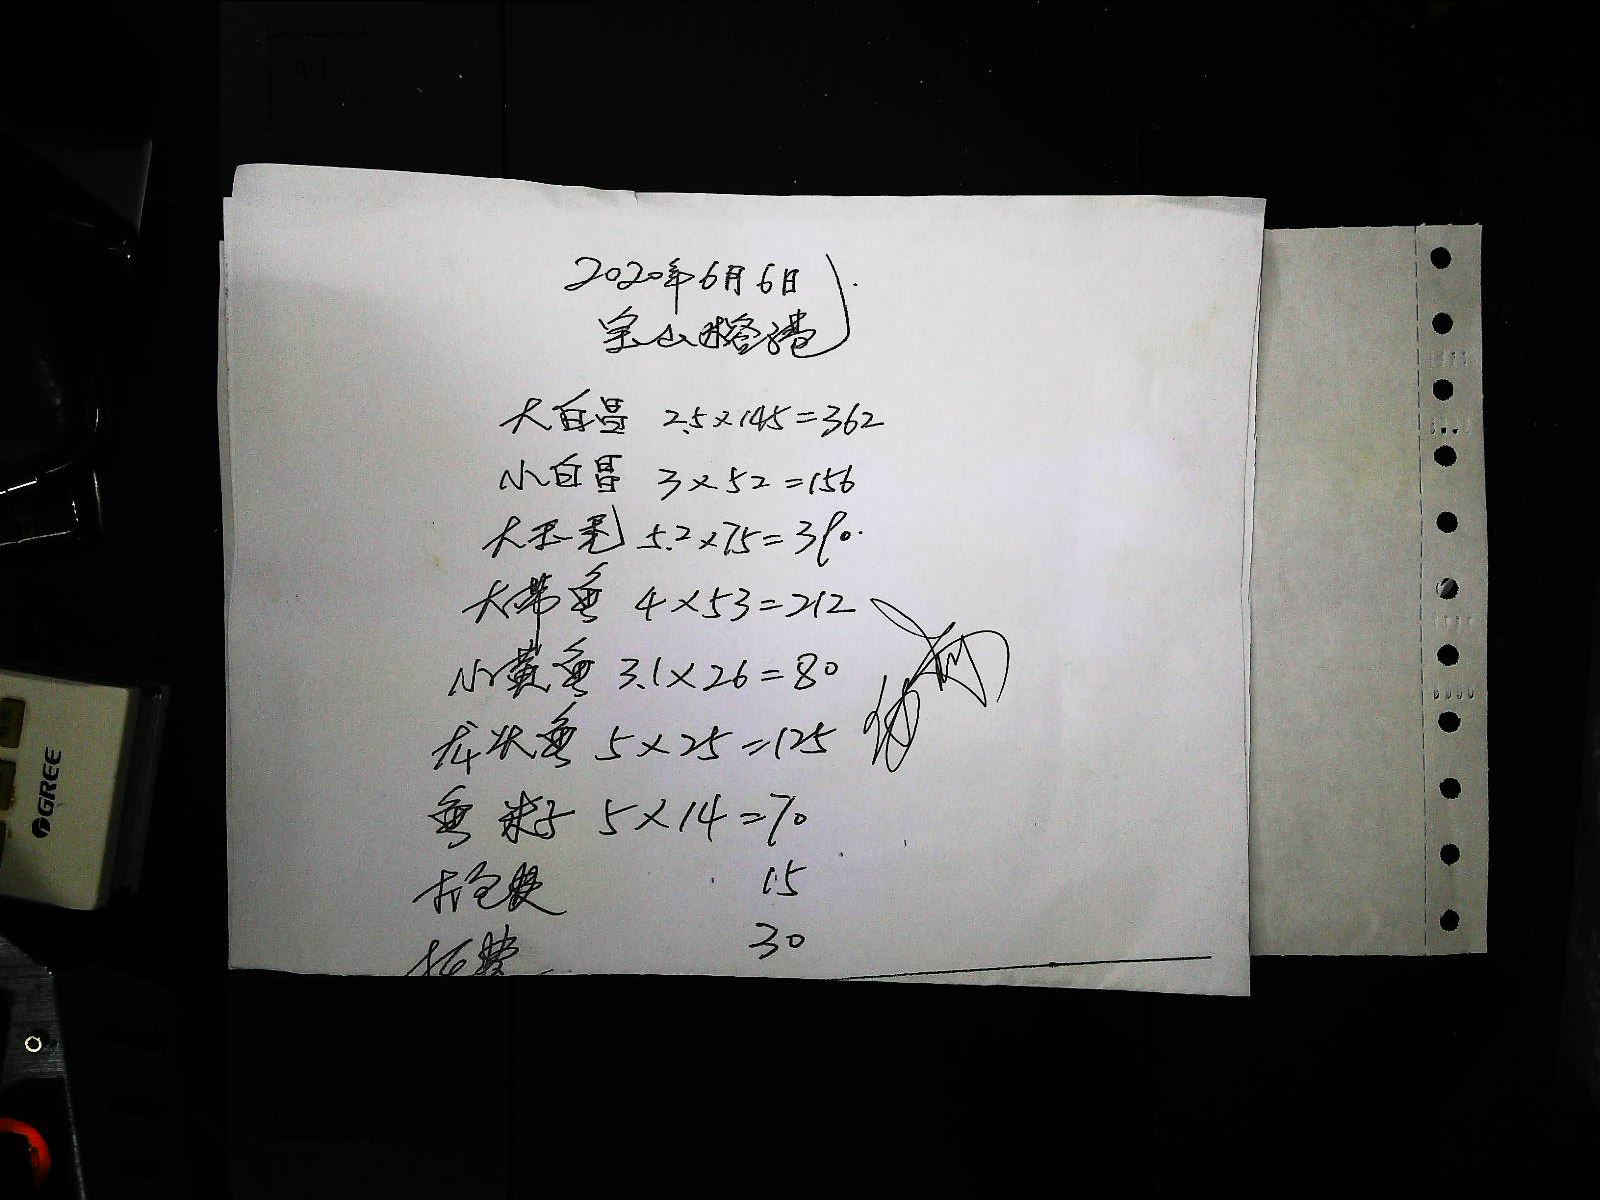 2020年6月6日
宝山
大白昌 2.5×145=362
小白昌 3×52=156
大玉秃 5.2×75=390
大带鱼 4×53=212
小黄鱼 3.1×26=80
龙头鱼 5×25=125
鱼籽 5×14=70
打包费 15
30
GREE